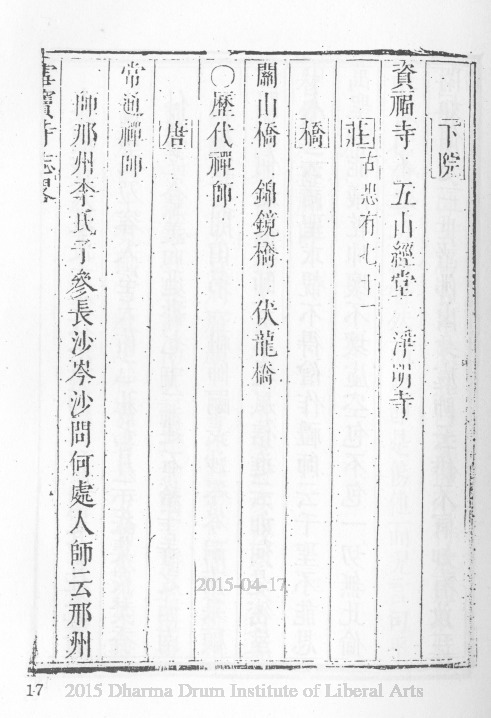 下院
資福寺 五山經堂 淨明寺
莊 古志有七十一
橋
關山橋 錦鏡橋 伏龍橋
○歷代禪師
唐
常通禪師
師邢州李氏子參長沙岑沙問何處人師云邢州
雪竇寺志畧
2015-04-17
17
2015 Dharma Drum Institute of Liberal Arts